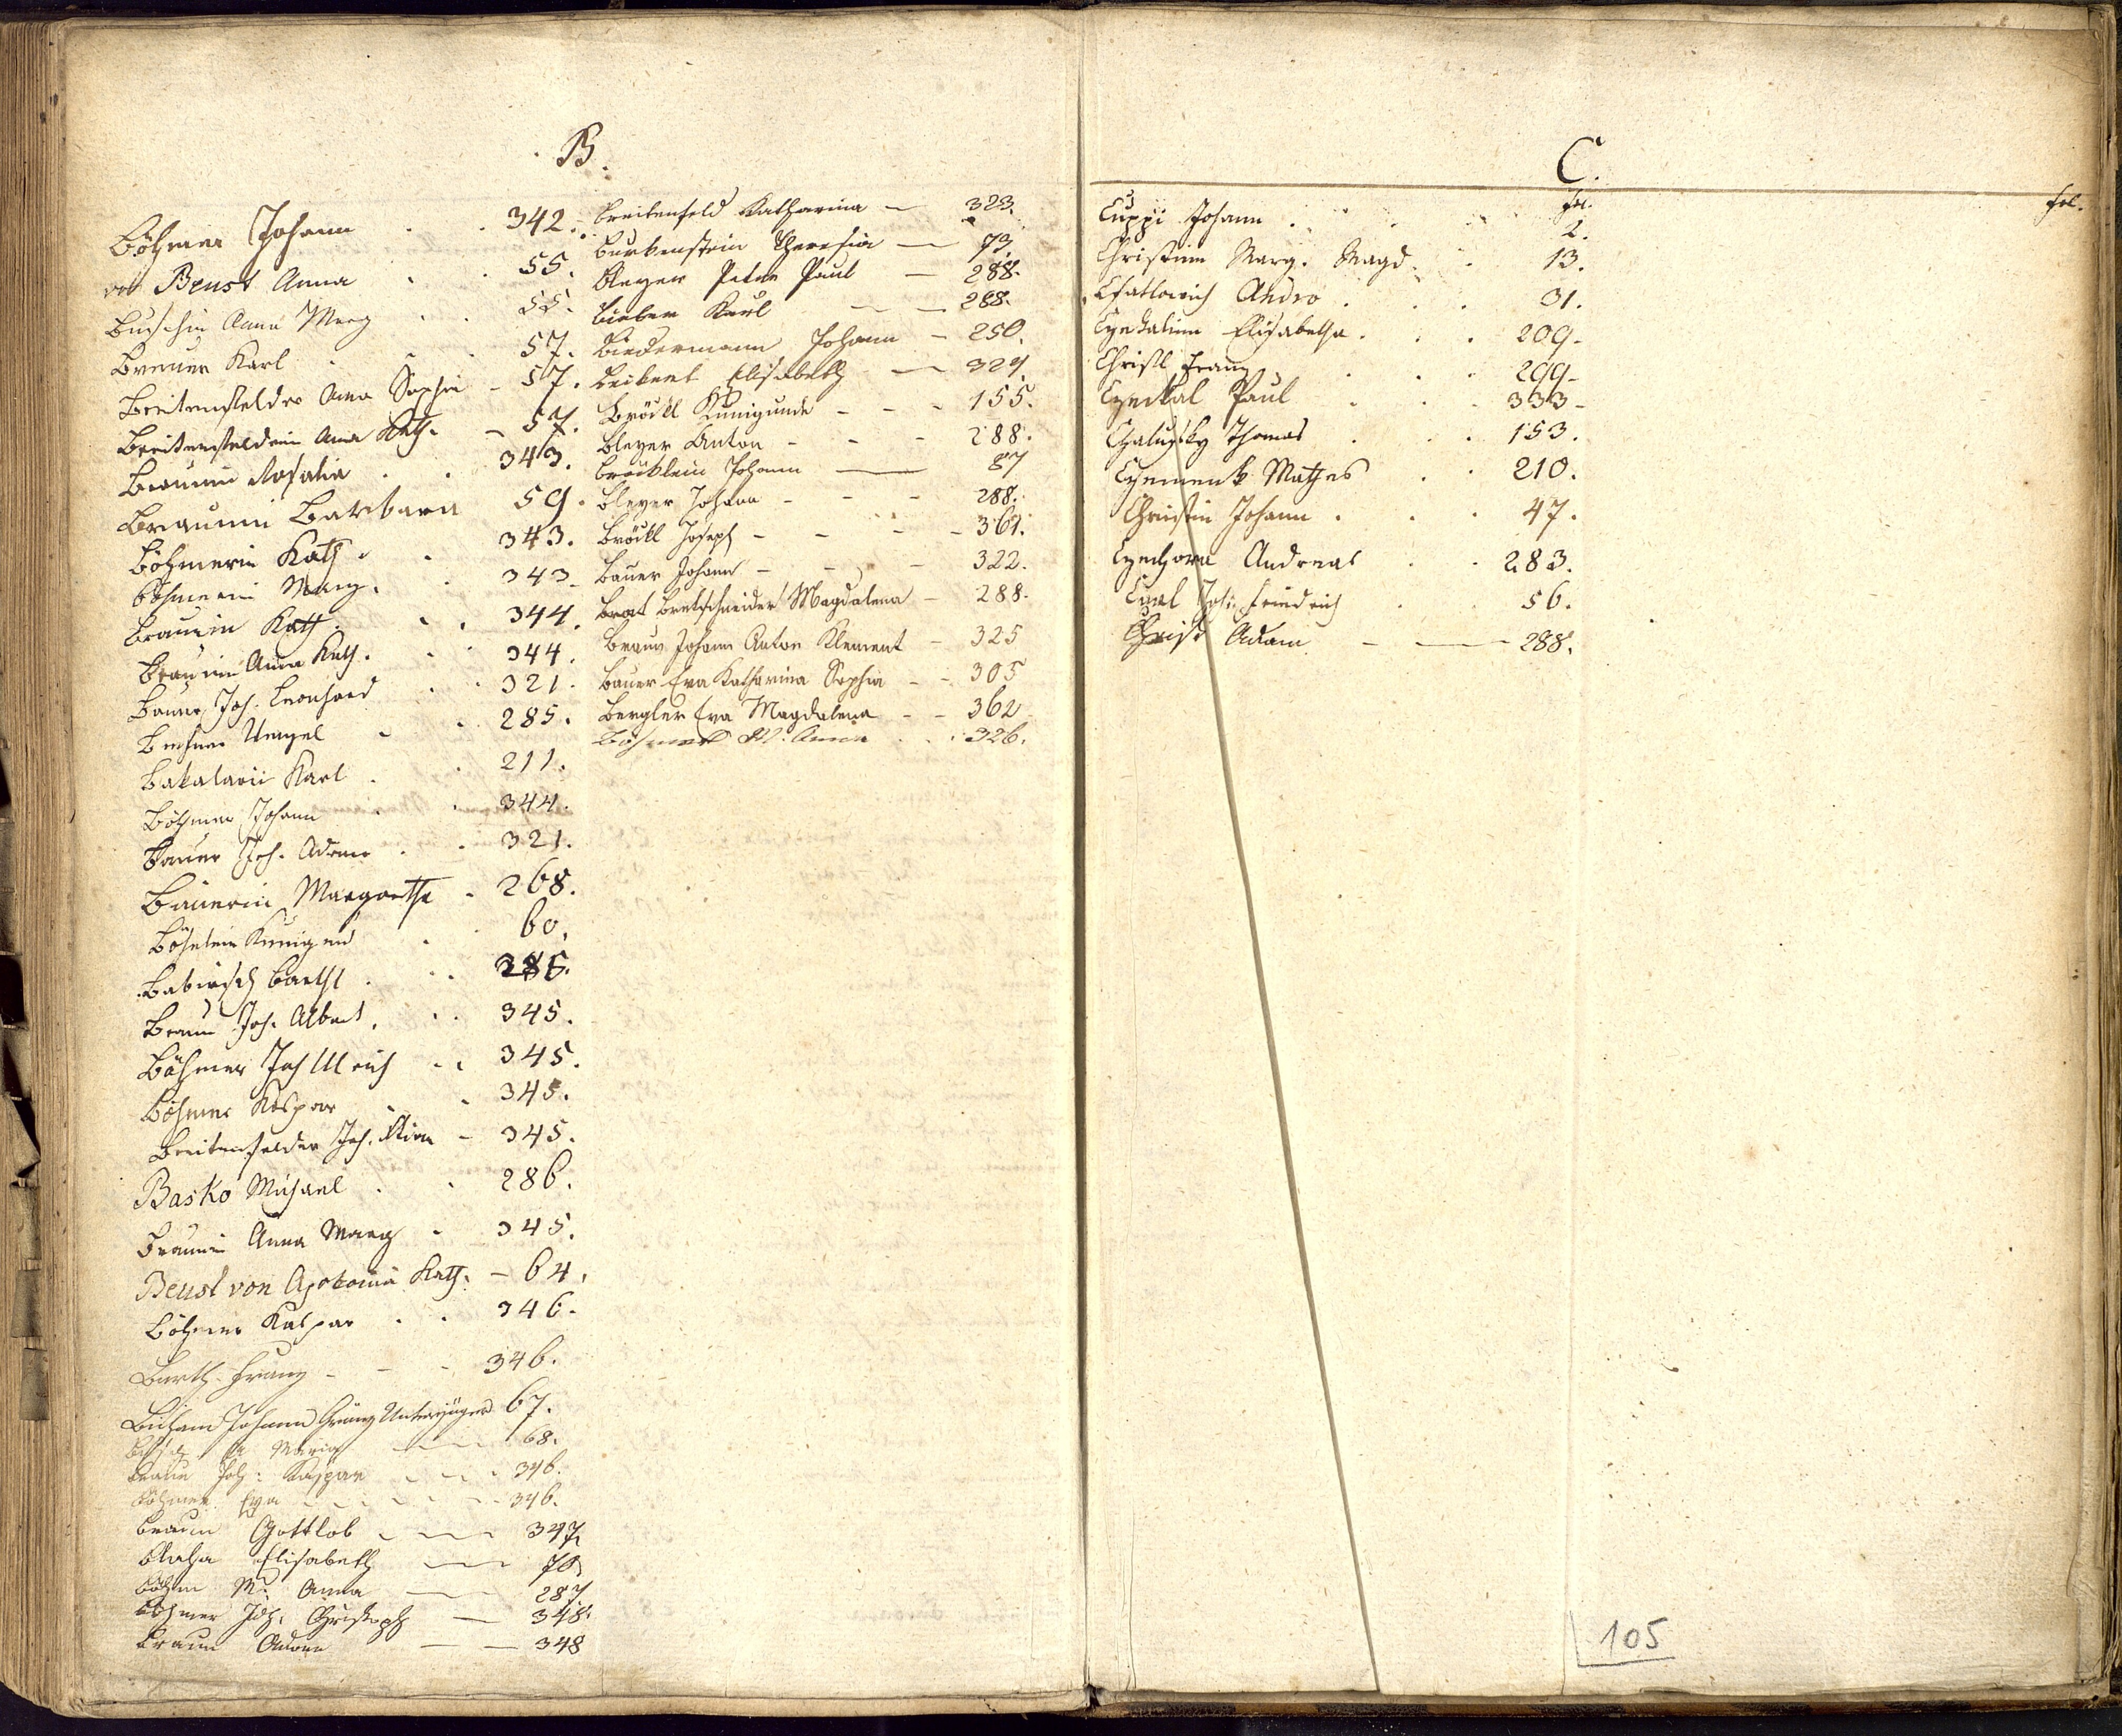 B.
Böhmer Johann . . 342.
von Beust Anna . . 55.
Anna Marg . . 55.
Breuer Karl . . 57.
Breitenfelder Anna Sophia - 57.
Breitenfelderin Anna Kath. - 57.
Braunin Rosalia . . 343.
Braunin Barbara 59.
Böhmerin Kath. . 343.
Böhmerin Marg. . 343.
Braunin Kath. . . 344.
Braunin Anna Kath. . . 344.
Bauer Joh. Leonhard . . 321.
Wenzel . . 285.
Bakalarii Karl . . 211.
Böhmer Johann . . 344.
Bauer Joh. Adam . . 321.
Bauerin Margaretha . 268.
Kunigund . 60.
Babirsch Barthl . . . 285.
Braun Joh. Albert . . . 345.
Böhmer Joh Ulrich . . 345.
Böhmer Kaspar . . 345.
Breitenfelder Joh. - 345.
Basko Michael . . 286.
Braunin Anna Marg . 345.
Beust von Apolonia Kath. - 64.
Böhmer Kaspar . . 346.
Barth Franz - - - 346.
Johann Gränz Unterjäger 67.
Maria 68.
Braun Joh: Kaspar 346.
Böhmer Eva 346.
Braun Gottlob 347.
Elisabeth 70.
Böhm M. Anna 287
Böhmer Joh. Christoph — 348.
Braun Adam — — 348
Breitenfeld Katharina — 323.
Burkenstein Theresia — 73.
Bleyer Peter Paul — 288.
Bieber Karl — — 288.
Biedermann Johann - 250.
Elisabeth — 324.
Bröckl Kunigunde - - - 155.
Bleyer Anton - - - 288.
Bröcklein Johann — 87
Bleyer Johann - - - 288.
Bröckl Joseph - - - - 361.
Bauer Johann - - - 322.
Bretschneider Magdalena - 288.
Braun Johann Anton Klement - 325
Bauer Eva Katharina Sophia - - 305
Bergler Eva Magdalena - - 362
Böhmer M. Anna . . . 326.
C.
fol. fol.
Cuppi Johann . . . . 2.
Christinin Marg. Magd. . 13.
Csatlovich Andro . . . 31.
Elisabetha . . . 209.
Christl Franz . . . 299.
Paul . . . 333.
Chalupsky Thomas . . . 153.
Mathes . . 210.
Christin Johann . . . 47.
Andreas . . 283.
Carl Joh: Friedrich . . 56.
Christ Adam - — 288.
105